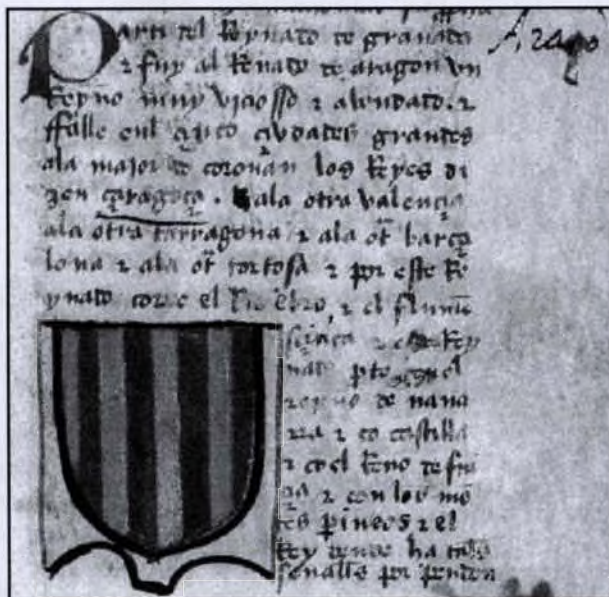 Parti del Reynado de granada
Arago
& fuy al Renado de aragon vn
Reyno muy viciosso & abondado. &
ffalle enl çinco çiudades grandes
ala maior do coronan los Reyes di
zen çaragoça. & ala otra valençia
ala otra tarragona & ala ot barçe
lona & ala ot tortosa & por este Re
ynado corre el Rio ebro, & el flumē
& este Rey
nado pte con el
reyno de nauar
ra & co castilla
& co el Reno de frā
çia & con los mō
tes pineos & el
Rey dende ha tales
señalls por pendon